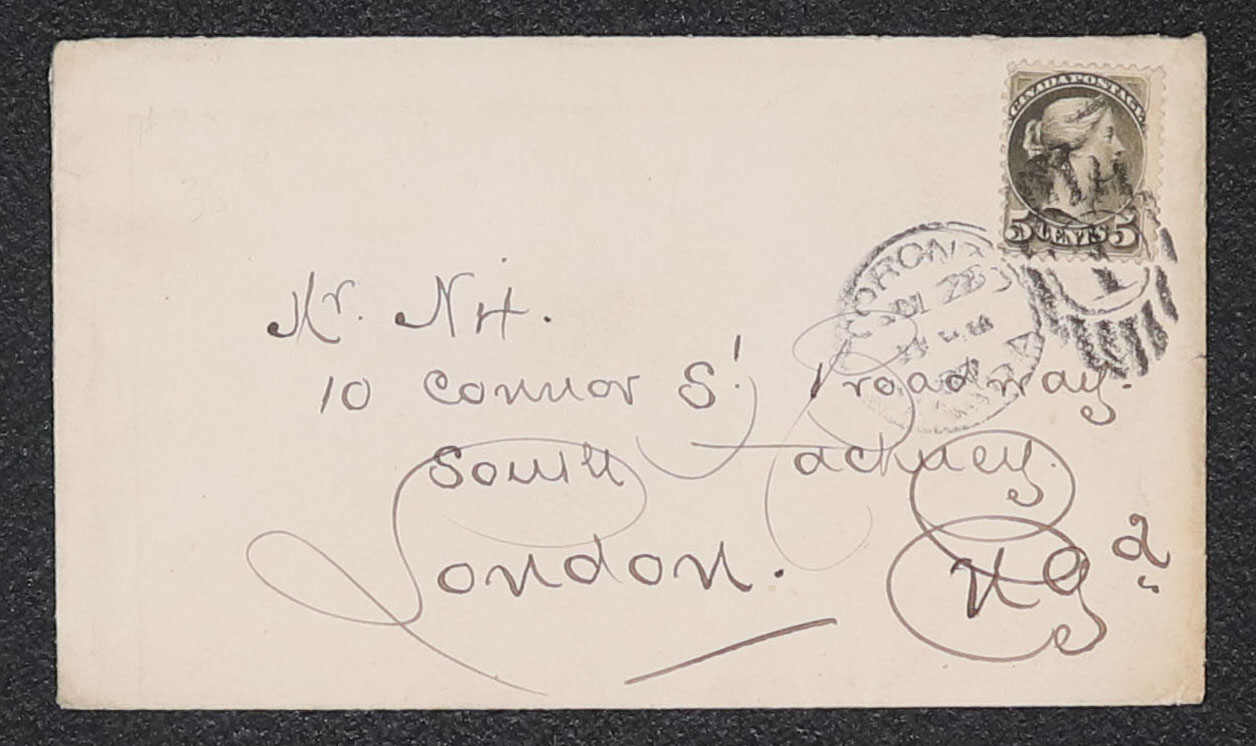 CANADA POSTAGE
5 CENTS 5
TORONTO
22
Mr. N H.
10 Connor St Broadway.
South Hackney.
London. Engd